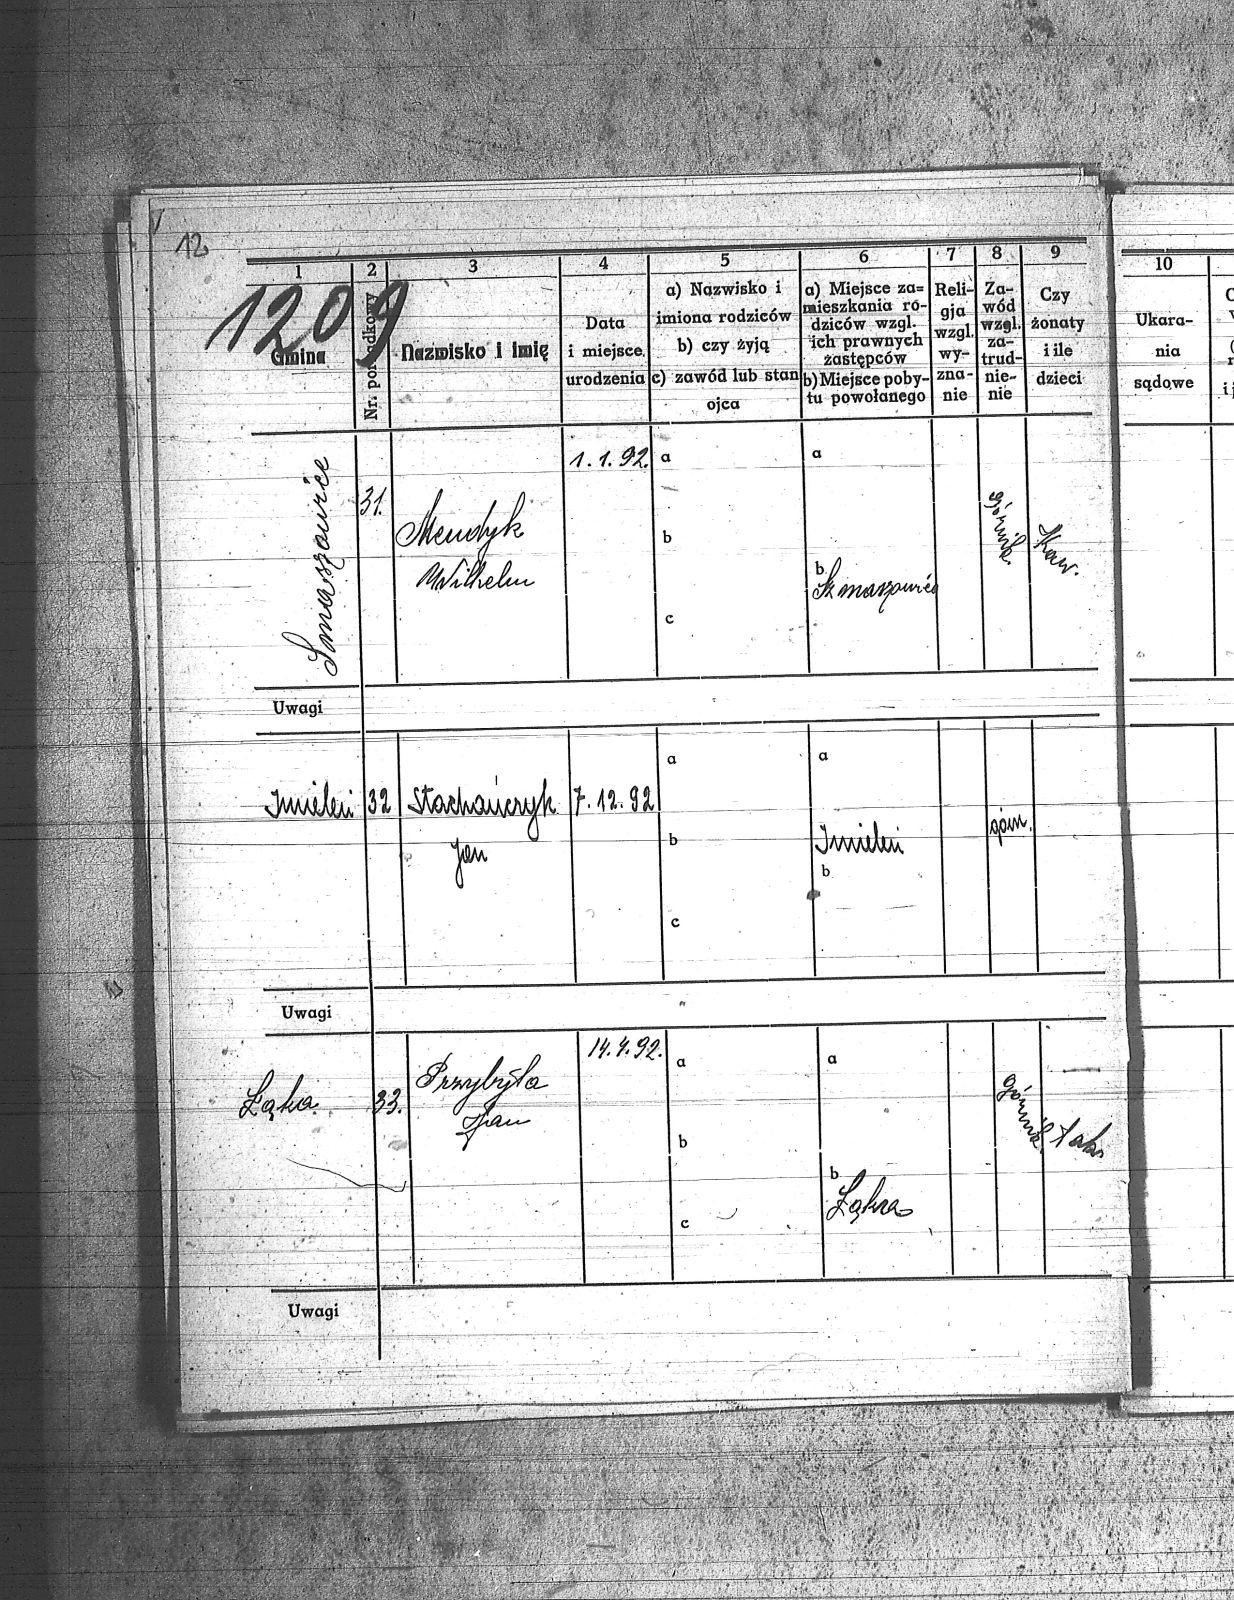 12
1209
1
2
3
4
5
6
7
8
9
10
Gmina
Nr. porządkowy
Nazwisko i imię
Data
i miejsce
urodzenia
a) Nazwisko i
imiona rodziców
b) czy żyją
c) zawód lub stan
ojca
a) Miejsce za=
mieszkania ro-
dziców wzgl.
ich prawnych
zastępców
b) Miejsce poby-
tu powołanego
Reli-
gja
wzgl.
wy-
zna-
nie
Za-
wód
wzgl.
za-
trud-
nie-
nie
Czy
żonaty
i ile
dzieci
Ukara-
nia
sądowe
31.
Mendyk
Wilhelm
1.1.92.
a
b
c
a
b
górnik
Kaw.
Uwagi
Imieleń
32
Stachańczyk
Jan
7.12.92
a
b
c
a
Imieleń
b
górn.
Uwagi
Łąka
33.
Przybyła
Jan
14.4.92.
a
b
c
a
b
Łąka
górnik
tak
Uwagi